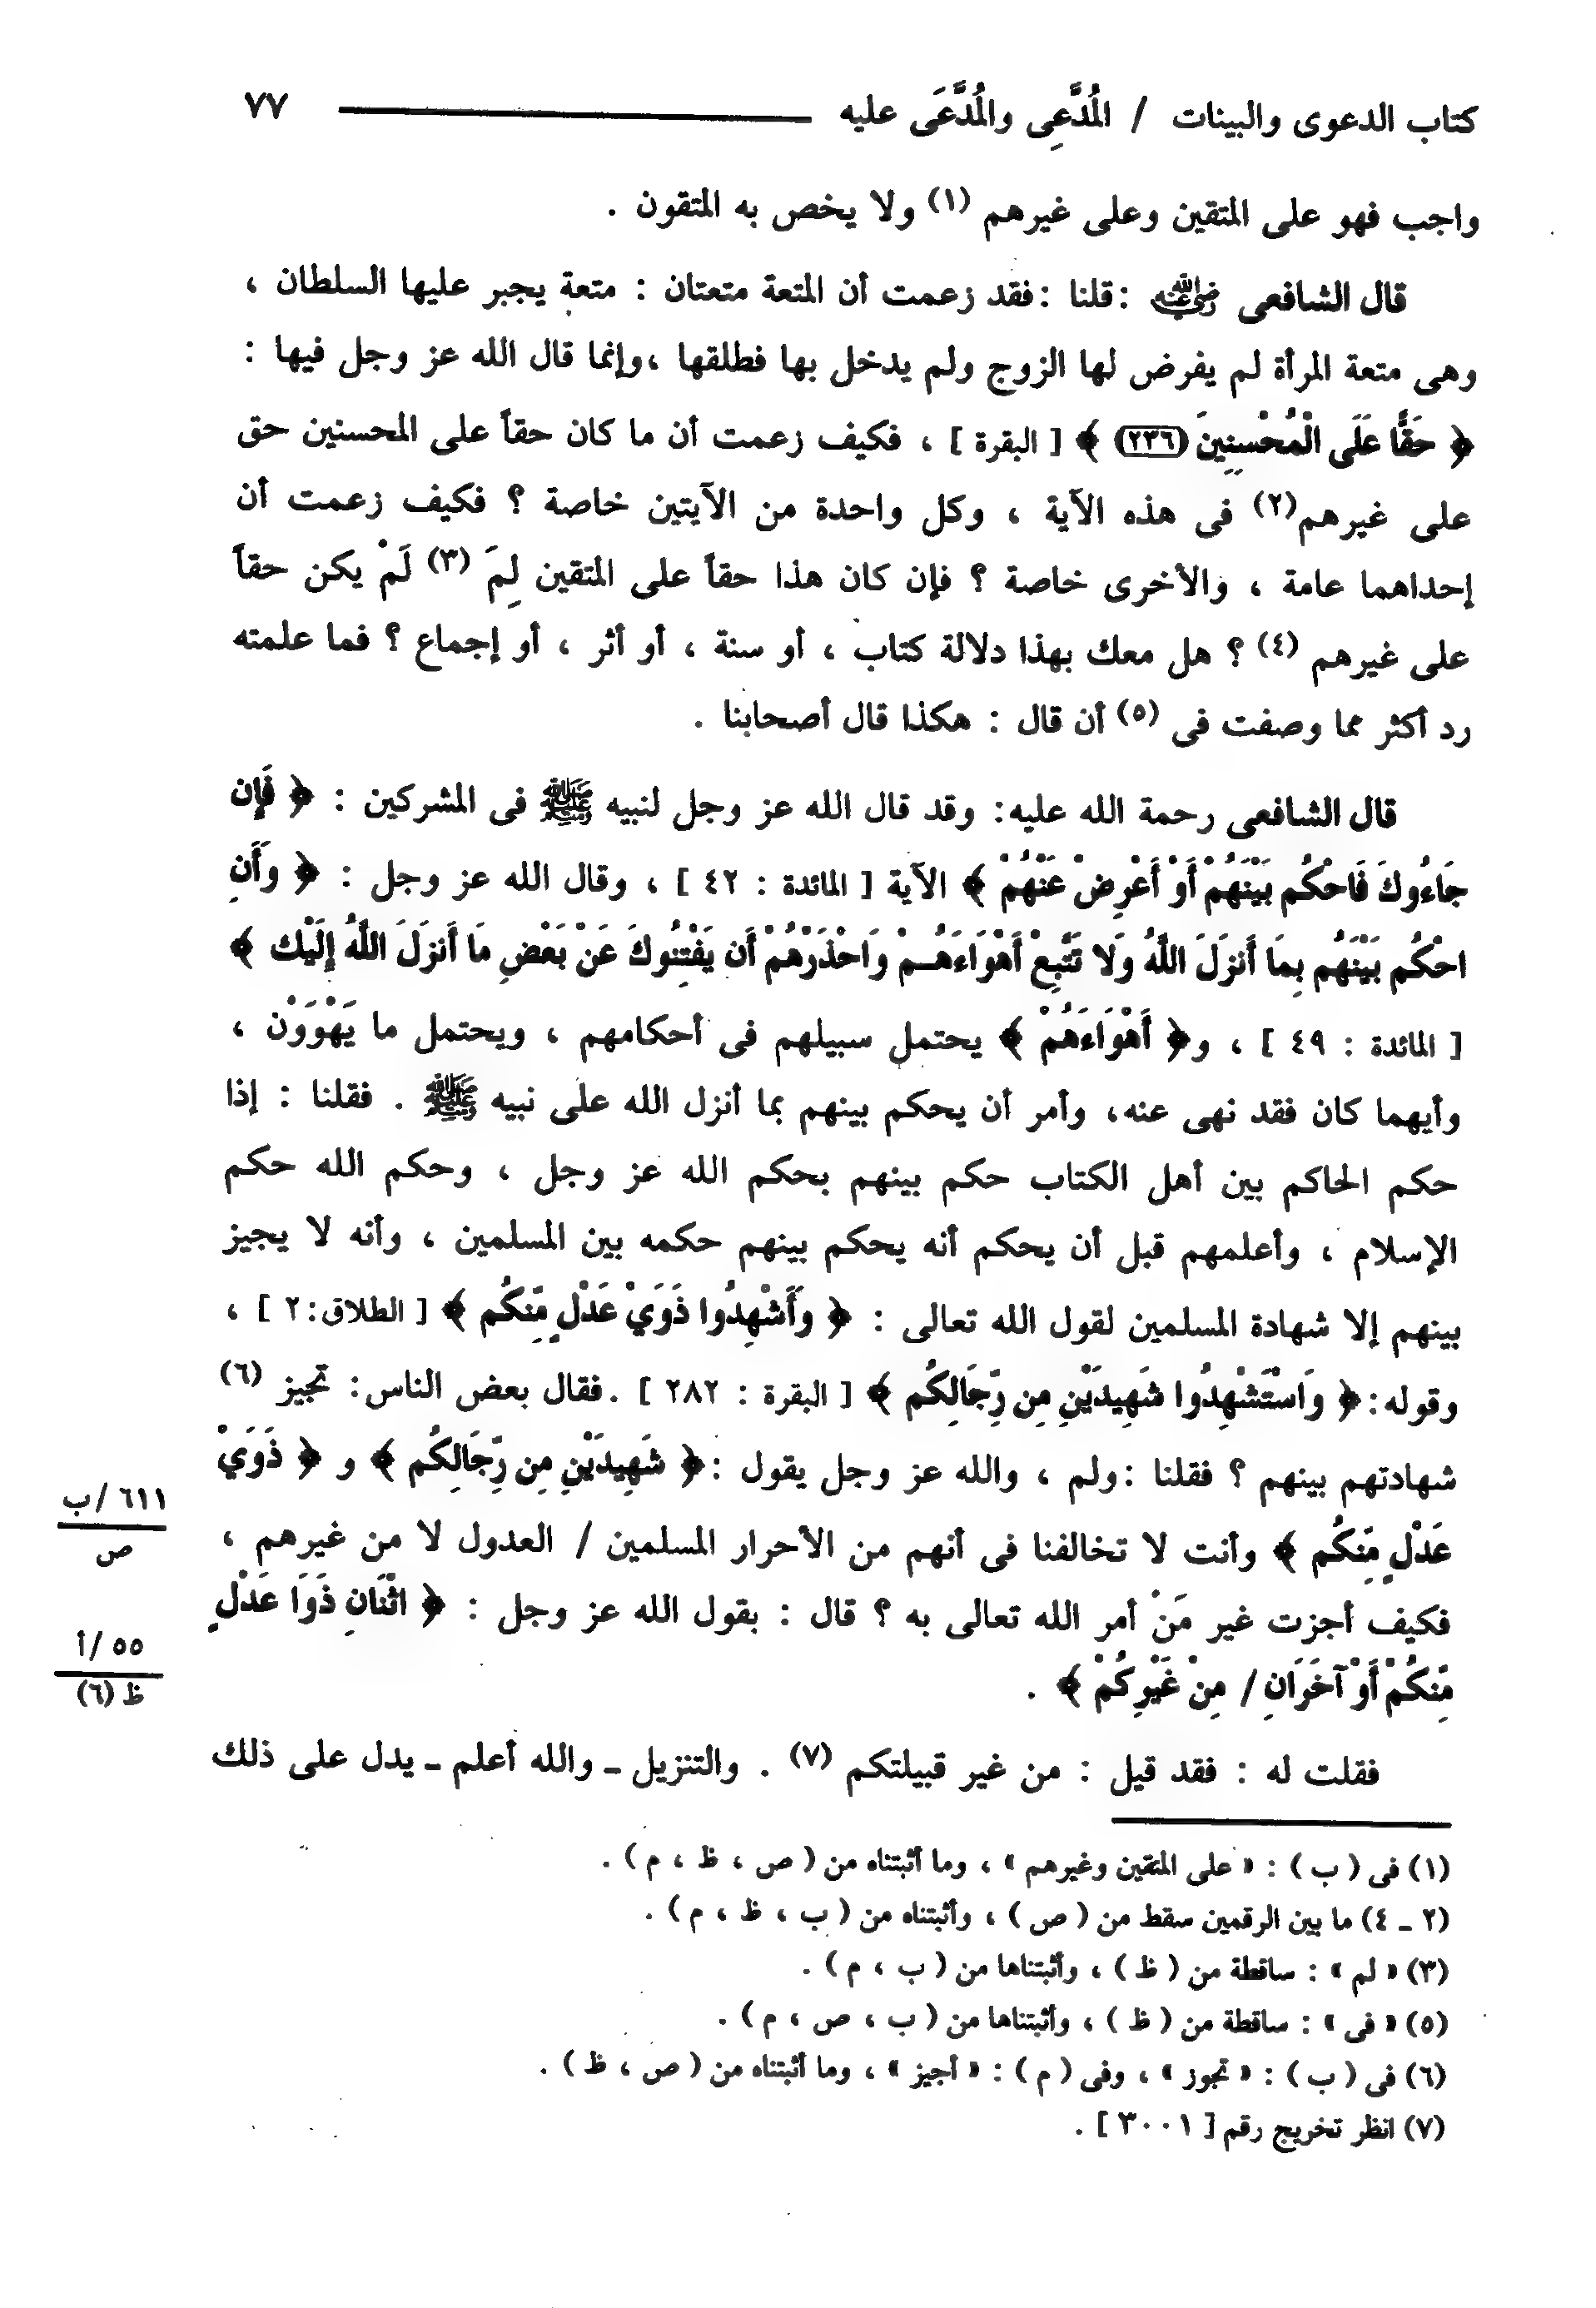 كتاب الدعوى والبينات / المُدَّعِى والمُدَّعَى عليه ٧٧
واجب فهو على المتقين وعلى غيرهم (١) ولا يخص به المتقون .
قال الشافعى رضي الله عنه : قلنا : فقد زعمت أن المتعة متعتان : متعة يجبر عليها السلطان ،
وهى متعة المرأة لم يفرض لها الزوج ولم يدخل بها فطلقها ، وإنما قال الله عز وجل فيها :
﴿ حَقًّا عَلَى الْمُحْسِنِينَ (٢٣٦) ﴾ [ البقرة ] ، فكيف زعمت أن ما كان حقاً على المحسنين حق
على غيرهم (٢) فى هذه الآية ، وكل واحدة من الآيتين خاصة ؟ فكيف زعمت أن
إحداهما عامة ، والأخرى خاصة ؟ فإن كان هذا حقاً على المتقين لِمَ (٣) لَمْ يكن حقاً
على غيرهم (٤) ؟ هل معك بهذا دلالة كتاب ، أو سنة ، أو أثر ، أو إجماع ؟ فما علمته
رد أكثر مما وصفت فى (٥) أن قال : هكذا قال أصحابنا .
قال الشافعى رحمة الله عليه : وقد قال الله عز وجل لنبيه ﷺ فى المشركين : ﴿ فَإِن
جَاءُوكَ فَاحْكُم بَيْنَهُمْ أَوْ أَعْرِضْ عَنْهُمْ ﴾ الآية [ المائدة : ٤٢ ] ، وقال الله عز وجل : ﴿ وَأَنِ
احْكُم بَيْنَهُم بِمَا أَنزَلَ اللَّهُ وَلا تَتَّبِعْ أَهْوَاءَهُمْ وَاحْذَرْهُمْ أَن يَفْتِنُوكَ عَنْ بَعْضِ مَا أَنزَلَ اللَّهُ إِلَيْك ﴾
[ المائدة : ٤٩ ] ، و﴿ أَهْوَاءَهُمْ ﴾ يحتمل سبيلهم فى أحكامهم ، ويحتمل ما يَهْوَوْن ،
وأيهما كان فقد نهى عنه ، وأمر أن يحكم بينهم بما أنزل الله على نبيه ﷺ . فقلنا : إذا
حكم الحاكم بين أهل الكتاب حكم بينهم بحكم الله عز وجل ، وحكم الله حكم
الإسلام ، وأعلمهم قبل أن يحكم أنه يحكم بينهم حكمه بين المسلمين ، وأنه لا يجيز
بينهم إلا شهادة المسلمين لقول الله تعالى : ﴿ وَأَشْهِدُوا ذَوَيْ عَدْلٍ مِّنكُم ﴾ [ الطلاق : ٢ ] ،
وقوله : ﴿ وَاسْتَشْهِدُوا شَهِيدَيْنِ مِن رِّجَالِكُم ﴾ [ البقرة : ٢٨٢ ] . فقال بعض الناس : تجيز (٦)
شهادتهم بينهم ؟ فقلنا : ولم ، والله عز وجل يقول : ﴿ شَهِيدَيْنِ مِن رِّجَالِكُم ﴾ و ﴿ ذَوَيْ
عَدْلٍ مِّنكُم ﴾ وأنت لا تخالفنا فى أنهم من الأحرار المسلمين / العدول لا من غيرهم ،
٦١١ /ب
ص
فكيف أجزت غير مَنْ أمر الله تعالى به ؟ قال : بقول الله عز وجل : ﴿ اثْنَانِ ذَوَا عَدْلٍ
٥٥ /أ
ظ (٦)
مِّنكُمْ أَوْ آخَرَانِ / مِنْ غَيْرِكُمْ ﴾ .
فقلت له : فقد قيل : من غير قبيلتكم (٧) . والتنزيل ـ والله أعلم ـ يدل على ذلك
(١) فى ( ب ) : « على المتقين وغيرهم » ، وما أثبتناه من ( ص ، ظ ، م ) .
(٢ ـ ٤) ما بين الرقمين سقط من ( ص ) ، وأثبتناه من ( ب ، ظ ، م ) .
(٣) « لم » : ساقطة من ( ظ ) ، وأثبتناها من ( ب ، م ) .
(٥) « فى » : ساقطة من ( ظ ) ، وأثبتناها من ( ب ، ص ، م ) .
(٦) فى ( ب ) : « تجوز » ، وفى ( م ) : « أجيز » ، وما أثبتناه من ( ص ، ظ ) .
(٧) انظر تخريج رقم [ ٣٠٠١ ] .